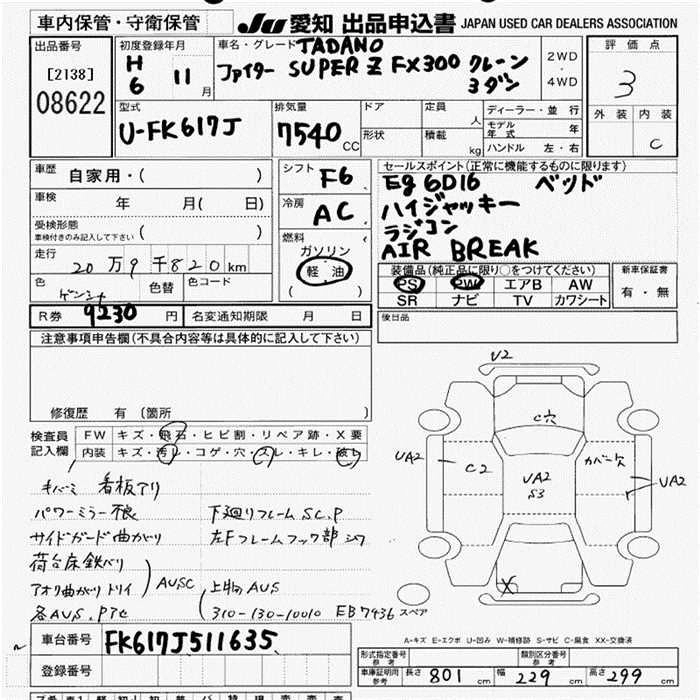 車内保管・守衛保管
JU 愛知 出品申込書 JAPAN USED CAR DEALERS ASSOCIATION
出品番号
[2138]
08622
初度登録年月
H
6 11 月
車名・グレード TADANO
ファイター SUPER Z FX300 クレーン
3ダン
2WD
・
4WD
評価点
3
外装 内装
C
型式
U-FK617J
排気量
7540 CC
ドア
形状
定員
人
積載
kg
ディーラー・並行
モデル年式 年
ハンドル 左・右
車歴
自家用・( )
車検
年 月( 日)
受検形態
車検付きのみ記入して下さい ( )
走行
20万9千820km
色 色替 色コード
ゲンショ
シフト
F6
冷房
AC
燃料
ガソリン
軽油
( )
セールスポイント(正常に機能するものに限ります)
Eg 6D16 ベッド
ハイジャッキー
ラジコン
AIR BREAK
装備品(純正品に限り○をつけてください)
PS PW エアB AW
SR ナビ TV カワシート
新車保証書
有・無
R券 9230 円
名変通知期限 月 日
後日品
注意事項申告欄(不具合内容等は具体的に記入して下さい)
修復歴 有(箇所 )
検査員
記入欄
FW キズ・飛石・ヒビ割・リペア跡・X要
内装 キズ・汚レ・コゲ・穴・スレ・キレ・破レ
キバミ 看板アリ
パワーミラー不良
サイドガード曲がり
荷台床鉄バリ
アオリ曲がり トリイ
各AUS.P7セ
AUSC
下廻りフレームSC.P
左Fフレームフック部シワ
上物AUS
310-130-10010 EB7436
V2
C穴
UA2
C2
UA2
S3
カバー欠
UA2
X
スペア
A-キズ E-エクボ U-凹み W-補修跡 S-サビ C-腐食 XX-交換済
車台番号
FK617J511635
登録番号
形式指定番号
参考
類別区分番号
参考
車庫証明用
参考
長さ 801 cm 幅 229 cm 高さ 299 cm